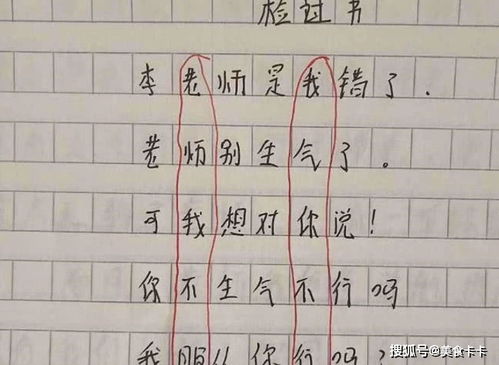 检过书
李老师是我错了.
老师别生气了。
可我想对你说!
你不生气不行吗
我服从你行吗?
搜狐号@美食卡卡